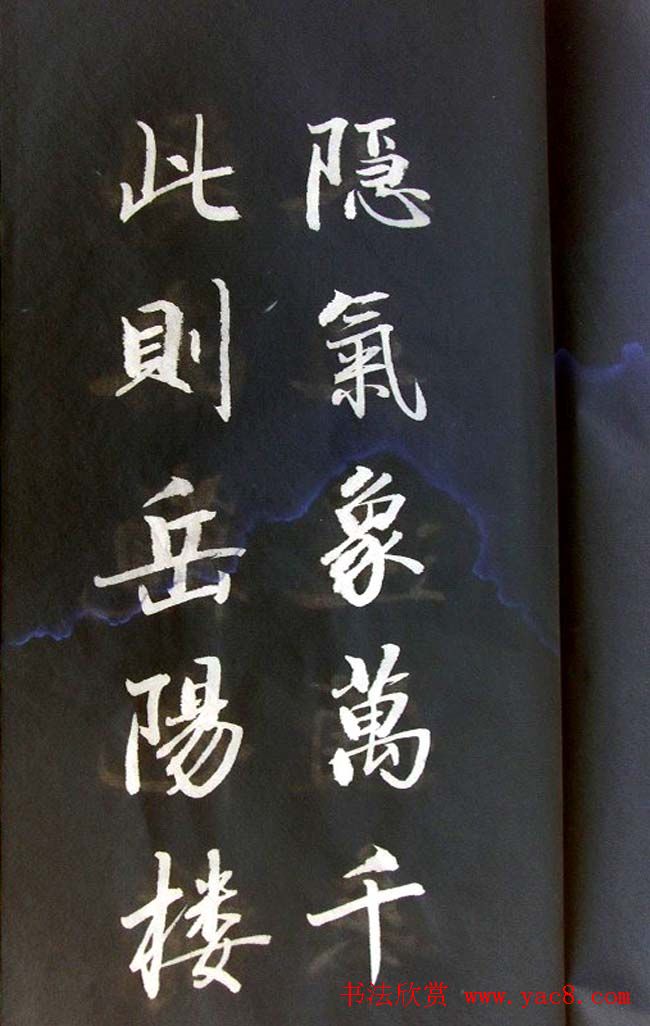 隠氣象萬千
此則岳陽楼
书法欣赏 www.yac8.com